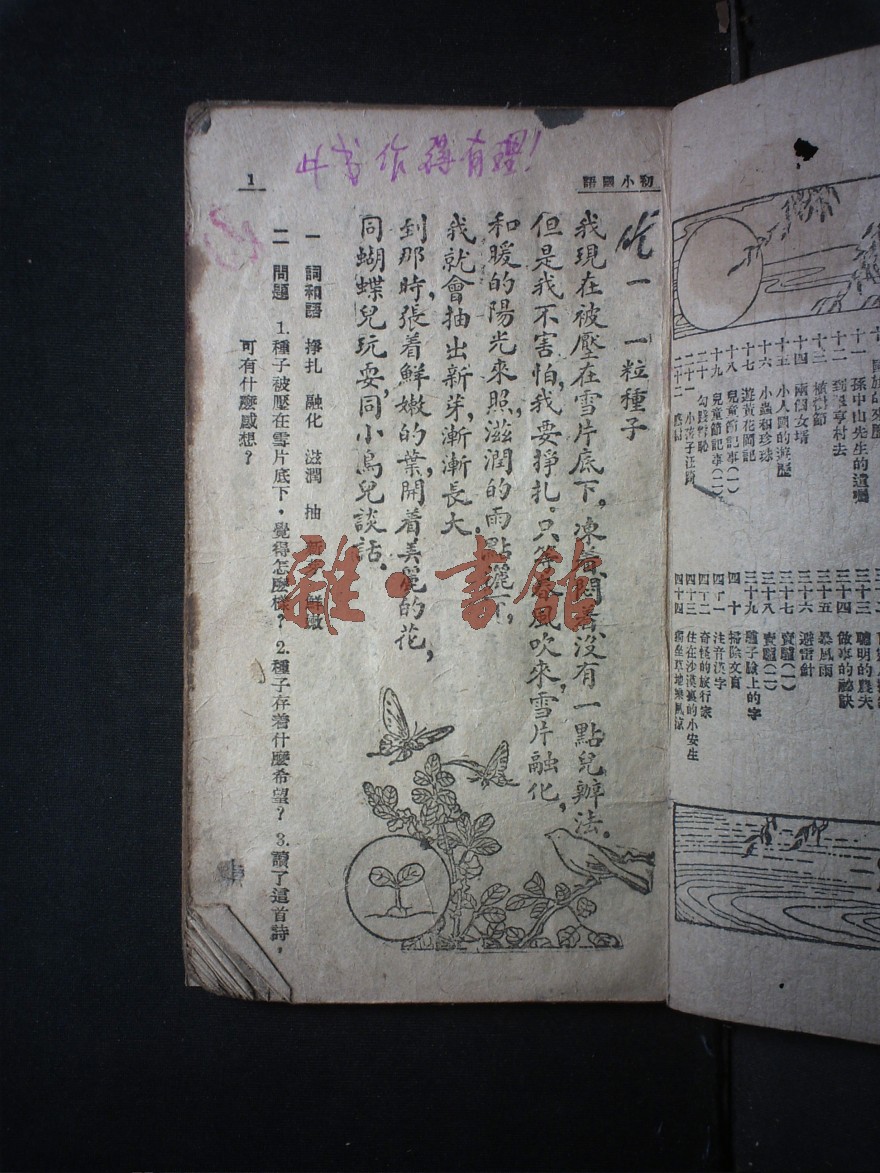 初小國語
1
此书作得有理!
一 一粒種子
我現在被壓在雪片底下，凍着悶着没有一點兒辦法。
但是我不害怕，我要掙扎。只等春風吹來，雪片融化，
和暖的陽光來照，滋潤的雨點灑下，
我就會抽出新芽，漸漸長大。
到那時，張着鮮嫩的葉，開着美麗的花，
同蝴蝶兒玩耍，同小鳥兒談話。
一 詞和語 掙扎 融化 滋潤 抽 新芽 鮮嫩
二 問題 1.種子被壓在雪片底下，覺得怎麼樣？ 2.種子存着什麼希望？ 3.讀了這首詩，
可有什麼感想？
雜·書館
十一 孫中山先生的遺囑
十二 到翠亨村去
十三 植樹節
十四 兩個女壻
十五 小人國的遊歷
十六 小蟲和珍珠
十七 遊黃花岡記
十八 兒童節記事(一)
十九 兒童節記事(二)
二十 勾踐雪恥
二十一 小孩子汪踦
二十二
三十三 聰明的農夫
三十四 做事的祕訣
三十五 暴風雨
三十六 避雷針
三十七 賣驢(一)
三十八 賣驢(二)
三十九 驢子臉上的字
四十 掃除文盲
四十一 注音漢字
四十二 奇怪的旅行家
四十三 住在沙漠裏的小安生
四十四